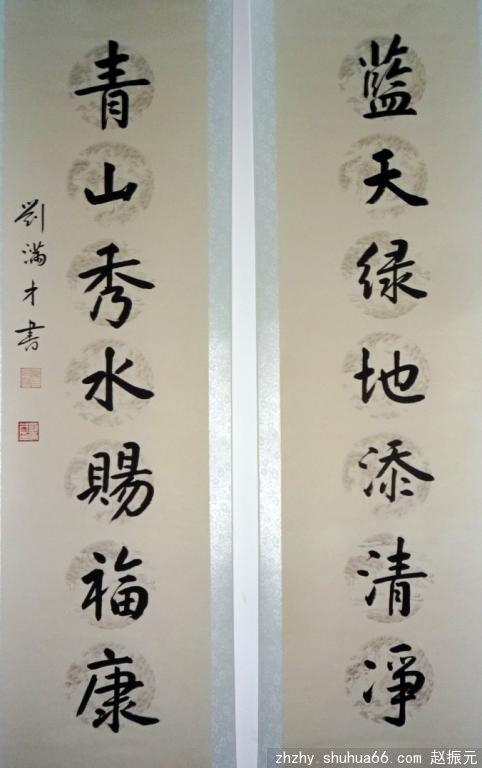 藍天绿地添清淨
青山秀水賜福康
劉满才書
zhzhy.shuhua66.com 赵振元